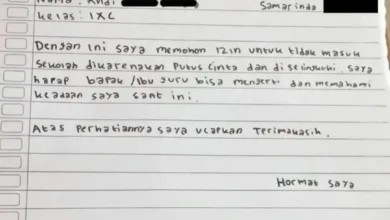 Nama : Andi
Samarinda
Kelas : IXC
Dengan ini saya memohon izin untuk tidak masuk
sekolah dikarenakan Putus Cinta dan diselingkuhi. Saya
harap bapak/ibu guru bisa mengerti dan memahami
keadaan saya saat ini.
Atas Perhatiannya saya ucapkan Terimakasih.
Hormat saya